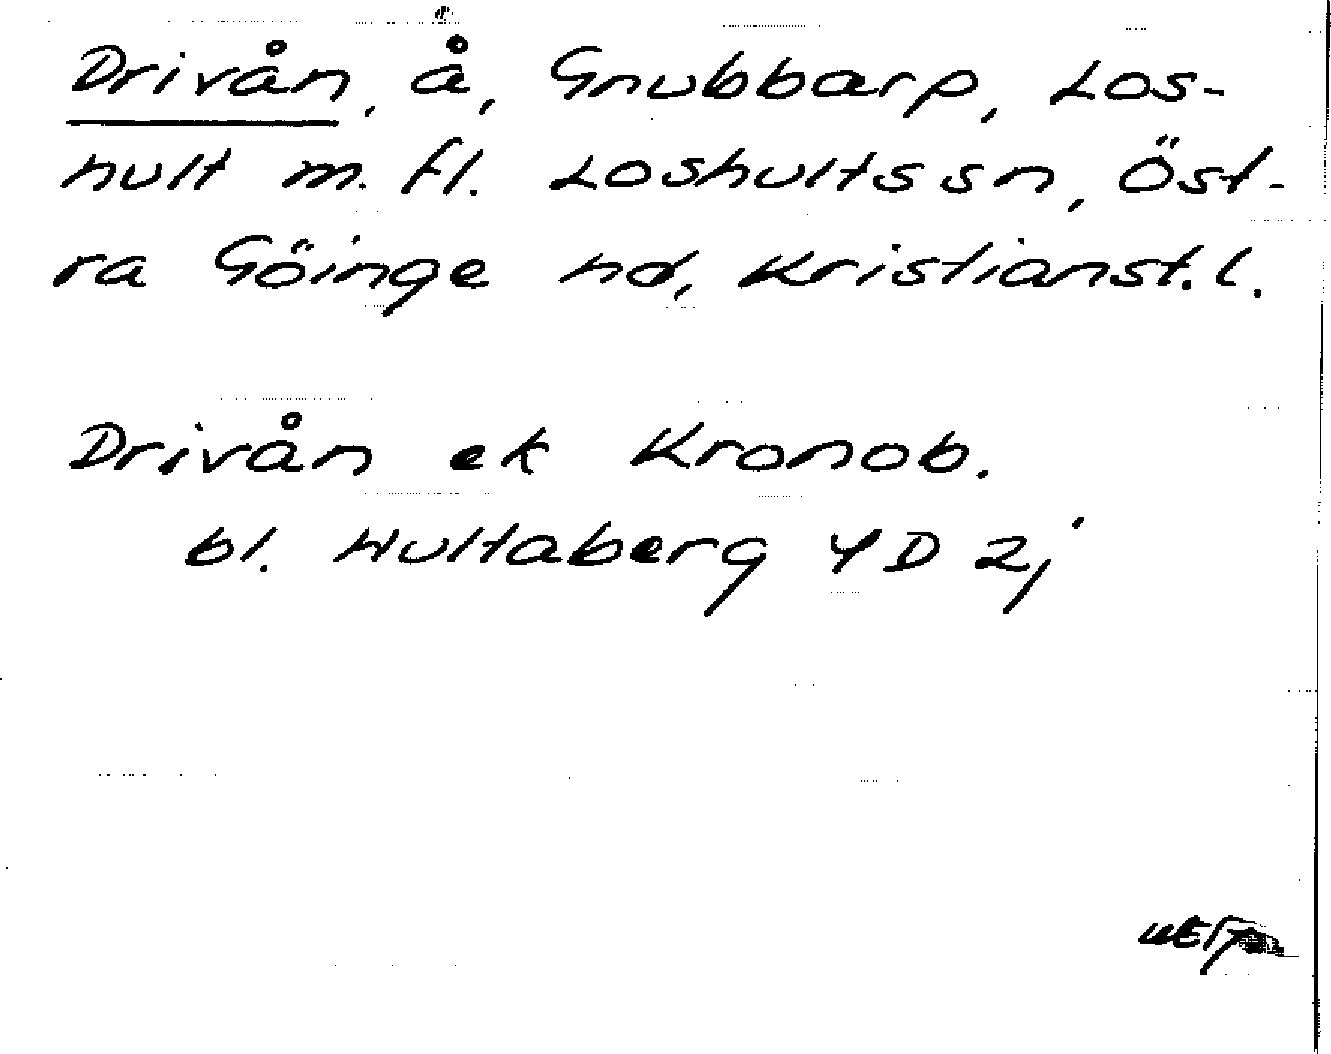 Drivån, å, Gnubbarp, Los-
hult m. fl. Loshults sn, Öst-
ra Göinge hd, Kristianst. l.
Drivån ek Kronob.
bl. Hultaberg 4D 2j